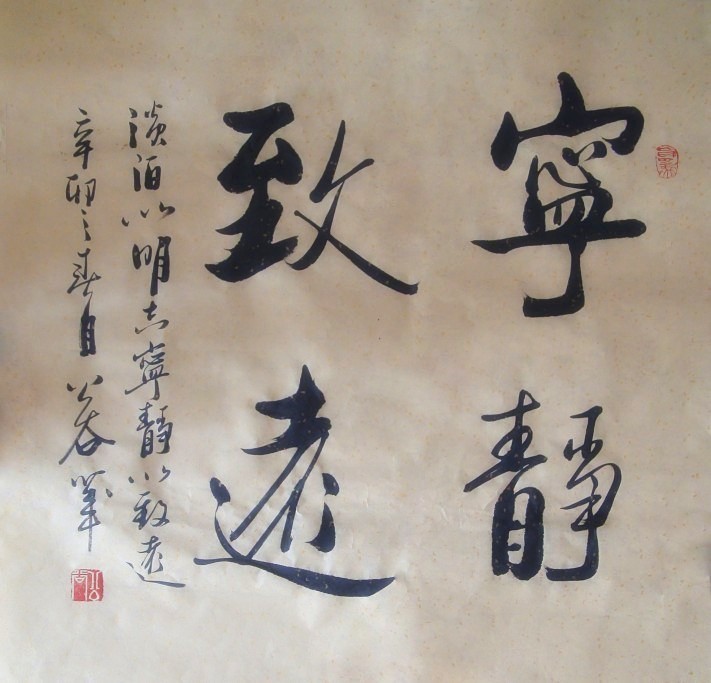 寧靜
致遠
淡泊以明志寧靜以致遠
辛卯之春月